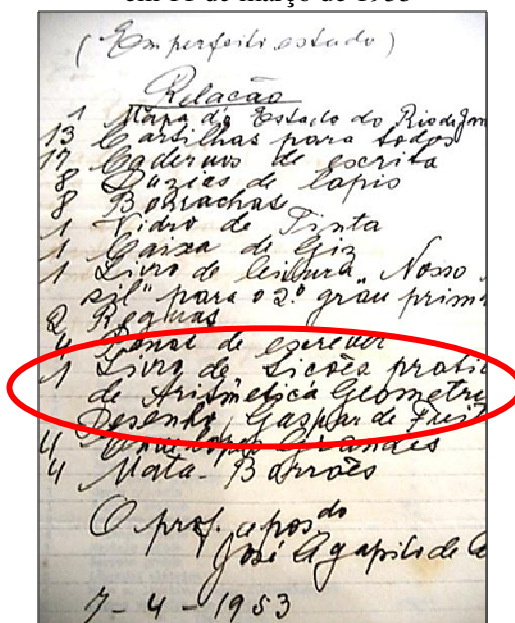 em 11 de março de 1953
(Em perfeito estado)
Relação
1 Mapa do Estado do Rio de Jan
13 Cartilhas para todos
17 Cadernos de escrita
8 Duzias de lapis
8 Borrachas
1 Vidro de Tinta
1 Caixa de Giz
1 Livro de leitura "Nosso
sil" para o 2º gráu prim
2 Reguas
4 de escrever
1 Livro de Licões prati
de Aritmetica Geometri
Desenho, Gaspar de Freit
4 Envelopes Grandes
4 Mata-Borrões
O prof. apos do
José Agapito de
7-4-1953